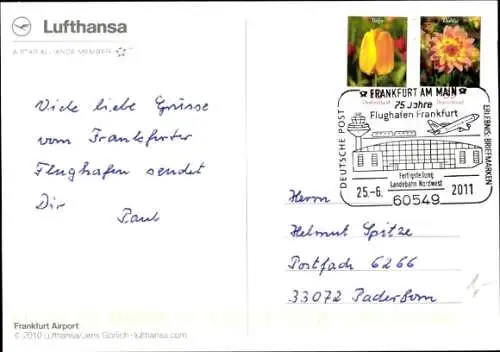 Lufthansa
A STAR ALLIANCE MEMBER
Viele liebe Grüsse
vom Frankfurter
Flughafen sendet
Dir
Paul
Frankfurt Airport
© 2010 Lufthansa/Jens Görlich · lufthansa.com
Tulpe
Dahlie
Deutschland
Deutschland
FRANKFURT AM MAIN
75 Jahre
Flughafen Frankfurt
DEUTSCHE POST
ERLEBNIS BRIEFMARKEN
Fertigstellung
Landebahn Nordwest
25.-6. 2011
60549
Herrn
Helmut Spitze
Postfach 6266
33072 Paderborn
1,-